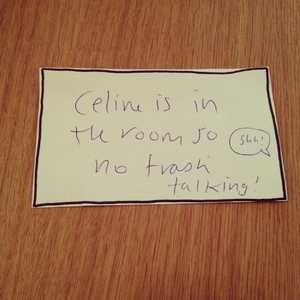 Celine is in
the room so
no trash
talking!
Shh!